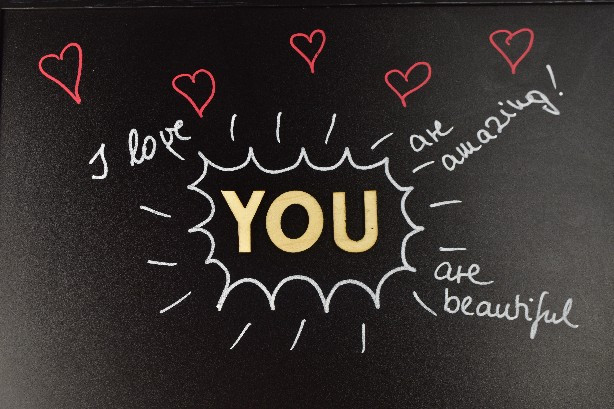 I love
YOU
are
amazing!
are
beautiful